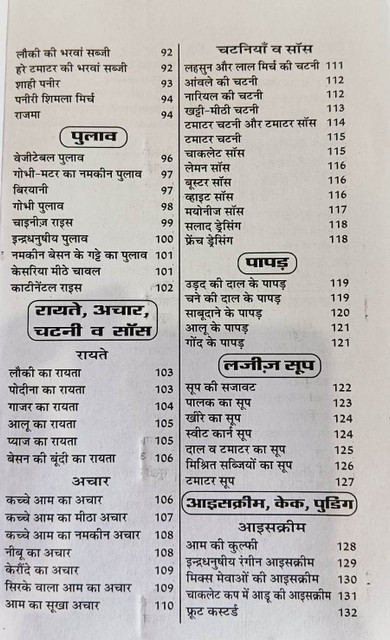 लौकी की भरवां सब्जी 92
हरे टमाटर की भरवां सब्जी 92
शाही पनीर 93
पनीरी शिमला मिर्च 94
राजमा 94
पुलाव
वेजीटेबल पुलाव 96
गोभी-मटर का नमकीन पुलाव 97
बिरयानी 97
गोभी पुलाव 98
चाइनीज़ राइस 99
इन्द्रधनुषीय पुलाव 100
नमकीन बेसन के गट्टे का पुलाव 101
केसरिया मीठे चावल 101
कार्टीनेंटल राइस 102
रायते, अचार,
चटनी व सॉस
रायते
लौकी का रायता 103
पोदीना का रायता 103
गाजर का रायता 104
आलू का रायता 105
प्याज का रायता 105
बेसन की बूंदी का रायता 106
अचार
कच्चे आम का अचार 106
कच्चे आम का मीठा अचार 107
कच्चे आम का नमकीन अचार 108
नीबू का अचार 108
करौंदे का अचार 109
सिरके वाला आम का अचार 109
आम का सूखा अचार 110
चटनियाँ व सॉस
लहसुन और लाल मिर्च की चटनी 111
आंवले की चटनी 112
नारियल की चटनी 112
खट्टी-मीठी चटनी 113
टमाटर चटनी और टमाटर सॉस 114
टमाटर चटनी 115
चाकलेट सॉस 115
लेमन सॉस 116
बूस्टर सॉस 116
व्हाइट सॉस 116
मयोनीज सॉस 117
सलाद ड्रेसिंग 118
फ्रेंच ड्रेसिंग 118
पापड़
उड़द की दाल के पापड़ 119
चने की दाल के पापड़ 119
साबूदाने के पापड़ 120
आलू के पापड़ 121
गोंद के पापड़ 121
लजीज़ सूप
सूप की सजावट 122
पालक का सूप 123
खीरे का सूप 124
स्वीट कार्न सूप 124
दाल व टमाटर का सूप 125
मिश्रित सब्जियों का सूप 126
टमाटर सूप 127
आइसक्रीम, केक, पुडिंग
आइसक्रीम
आम की कुल्फी 128
इन्द्रधनुषीय रंगीन आइसक्रीम 129
मिक्स मेवाओं की आइसक्रीम 130
चाकलेट कप में आडू की आइसक्रीम 131
फ्रूट कस्टर्ड 132